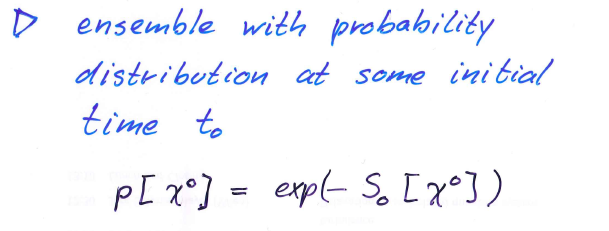 ▷ ensemble with probability
distribution at some initial
time t₀
p[χ⁰] = exp(- S₀ [χ⁰])